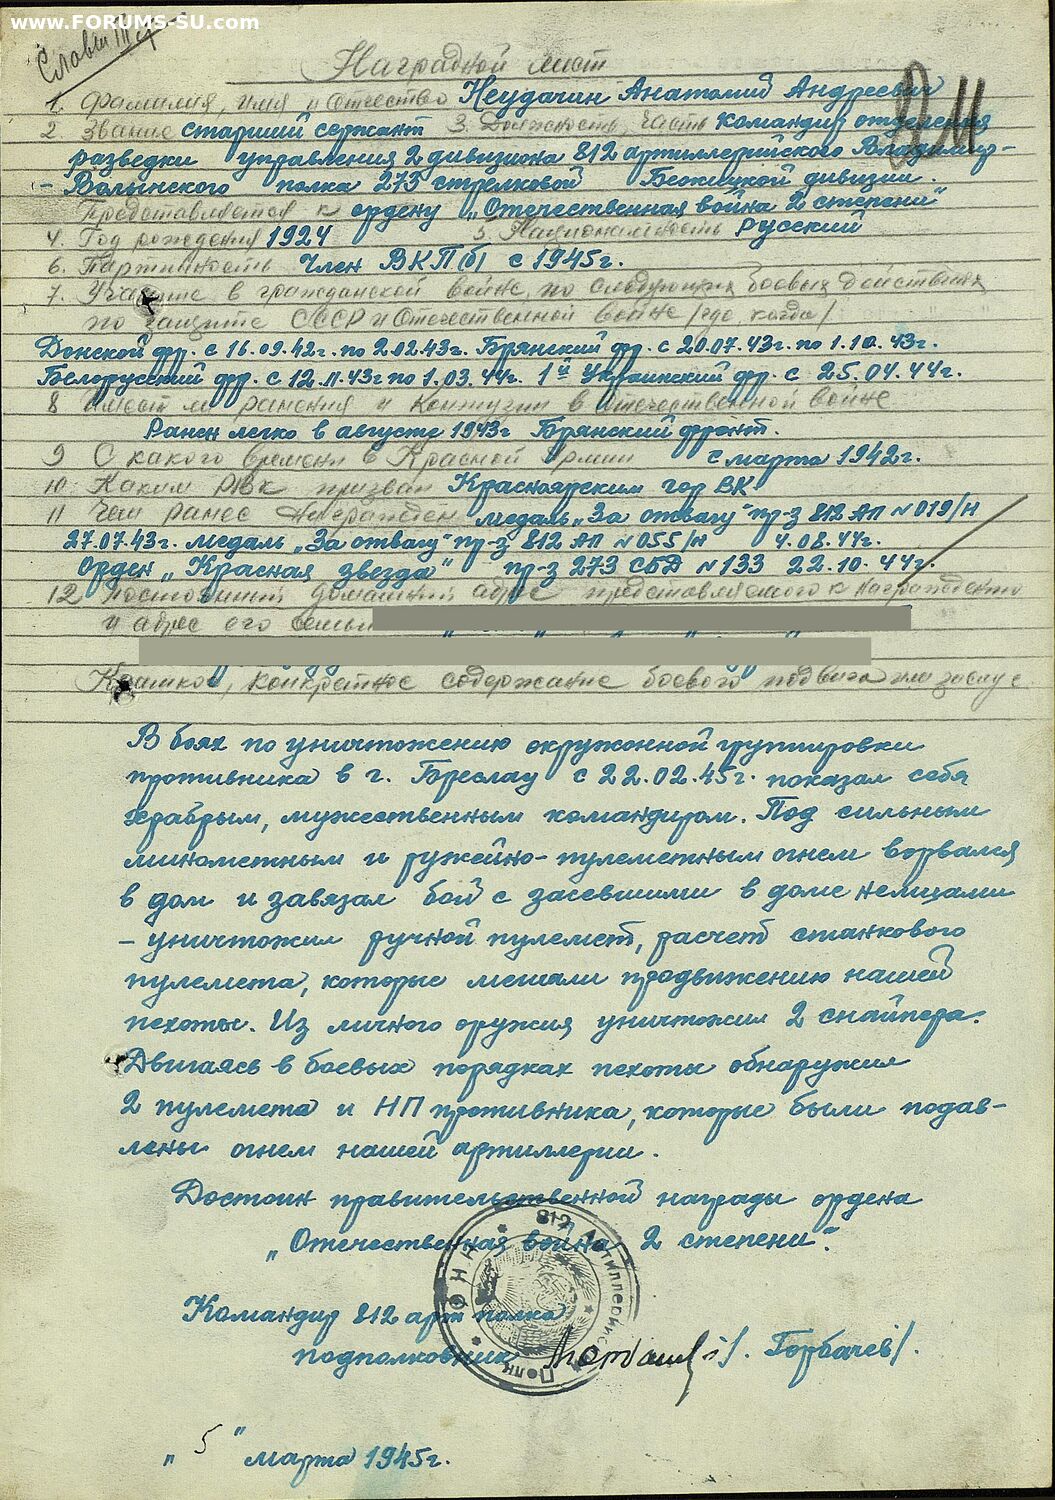 www.FORUMS-SU.com
Славы III ст
Наградной лист
1. Фамилия, имя и Отчество Неудачин Анатолий Андреевич
2. Звание старший сержант 3. Должность, часть командир отделения
разведки управления 2 дивизиона 812 артиллерийского Владимир-
- Волынского полка 273 стрелковой Бежицкой дивизии.
Представляется к ордену „Отечественная война 2 степени"
4. Год рождения 1924 5. Национальность русский
6. Партийность Член ВКП(б) с 1945г.
7. Участие в гражданской войне, по следующих боевых действиях
по защите СССР и Отечественной войне /где, когда/
Донской фр. с 16.09.42г. по 2.02.43г. Брянский фр. с 20.07.43г. по 1.10.43г.
Белорусский фр. с 12.11.43г по 1.03.44г. 1й Украинский фр. с 25.04.44г.
8 Имеет ли ранения и контузии в отечественной войне
Ранен легко в августе 1943г Брянский фронт.
9 С какого времени в Красной Армии с марта 1942г.
10 Каким РВК призван Красноярским гор ВК
11 Чем ранее награжден медаль „За отвагу" пр-з 812 АП №019/н
27.07.43г. медаль „За отвагу" пр-з 812 АП №055/н 4.08.44г.
Орден „Красная звезда" пр-з 273 СБД №133 22.10.44г.
12 Постоянный домашний адрес представляемого к награждению
и адрес его семьи
Краткое, конкретное содержание боевого подвига или заслуг
В боях по уничтожению окружонной группировки
противника в г. Бреслау с 22.02.45г. показал себя
храбрым, мужественным командиром. Под сильным
минометным и ружейно-пулеметным огнем ворвался
в дом и завязал бой с засевшими в доме немцами
- уничтожил ручной пулемет, расчет станкового
пулемета, которые мешали продвижению нашей
пехоты. Из личного оружия уничтожил 2 снайпера.
Двигаясь в боевых порядках пехоты обнаружил
2 пулемета и НП противника, которые были подав-
лены огнем нашей артиллерии.
Достоин правительственной награды ордена
„Отечественная война 2 степени".
812 Артиллерийск Полк Н.К.О
Командир 812 арт полка
подполковник /Горбачев/.
„5" марта 1945г.